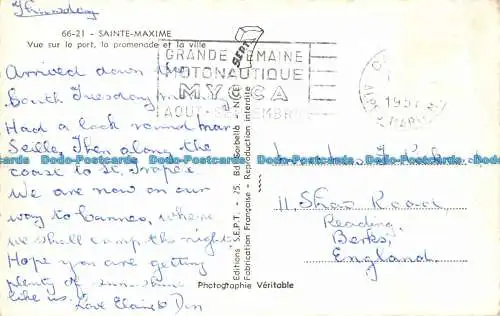 Thursday
66-21 - SAINTE-MAXIME
Vue sur le port, la promenade et la ville
Arrived down the
South Tuesday
Had a look round Mar
Seille, Then along the
coast to St. Tropez
We are now on our
way to Cannes, where
we shall camp the night
Hope you are getting
plenty of sunshine
like us. Love Elaine & Den
SEPT.
GRANDE SEMAINE
PHOTONAUTIQUE
AOUT-SEPTEMBRE
Editions S.E.P.T. - 25, Bd Gorbella - NICE
Fabrication Française - Reproduction interdite
Photographie Véritable
195
11 Shaw Road
Reading,
Berks,
England.
Dodo-Postcards Dodo-Postcards Dodo-Postcards Dodo-Postcards Dodo-Postcards